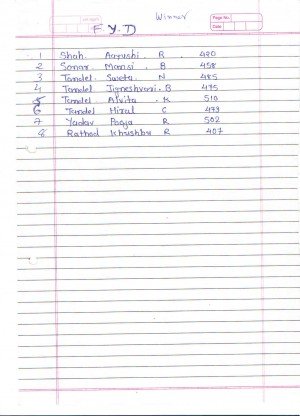 Winner
Page No.
Date
F.Y.D
1 Shah. Aarushi . R . 420
2 Sonar Mansi . B 458
3 Tandel Sweta . N 485
4 Tandel Jigneshvari . B 475
5 Tandel Alvita . K 510
6 Tandel Hiral C 473
7 Yadav Pooja R 502
8 Rathod Khushbu R 407